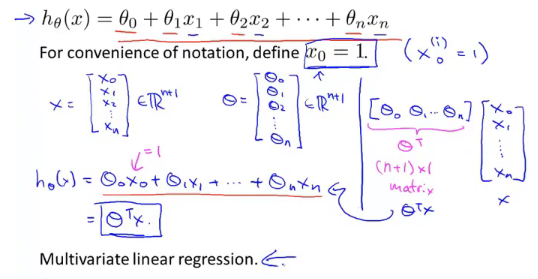 → hθ(x) = θ₀ + θ₁x₁ + θ₂x₂ + ⋯ + θₙxₙ
For convenience of notation, define x₀ = 1. (x₀⁽ⁱ⁾ = 1)
x = [x₀ x₁ x₂ ⋮ xₙ] ∈ ℝⁿ⁺¹ θ = [θ₀ θ₁ θ₂ ⋮ θₙ] ∈ ℝⁿ⁺¹
[θ₀ θ₁ ⋯ θₙ] [x₀ x₁ ⋮ xₙ]
θᵀ
(n+1) × 1
matrix
θᵀx x
= 1
hθ(x) = θ₀x₀ + θ₁x₁ + ⋯ + θₙxₙ
= θᵀx.
Multivariate linear regression. ←